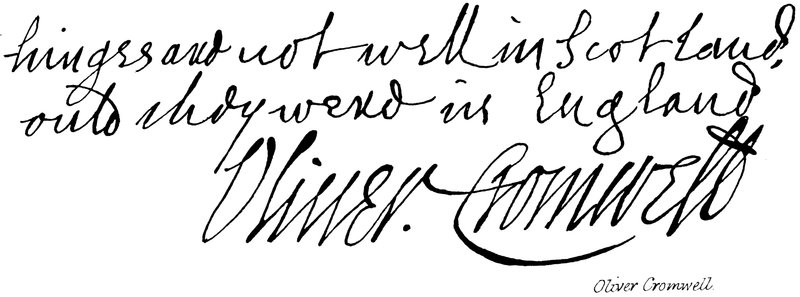 hinges are not well in Scotland,
ould they were in England
Oliver Cromwell
Oliver Cromwell.